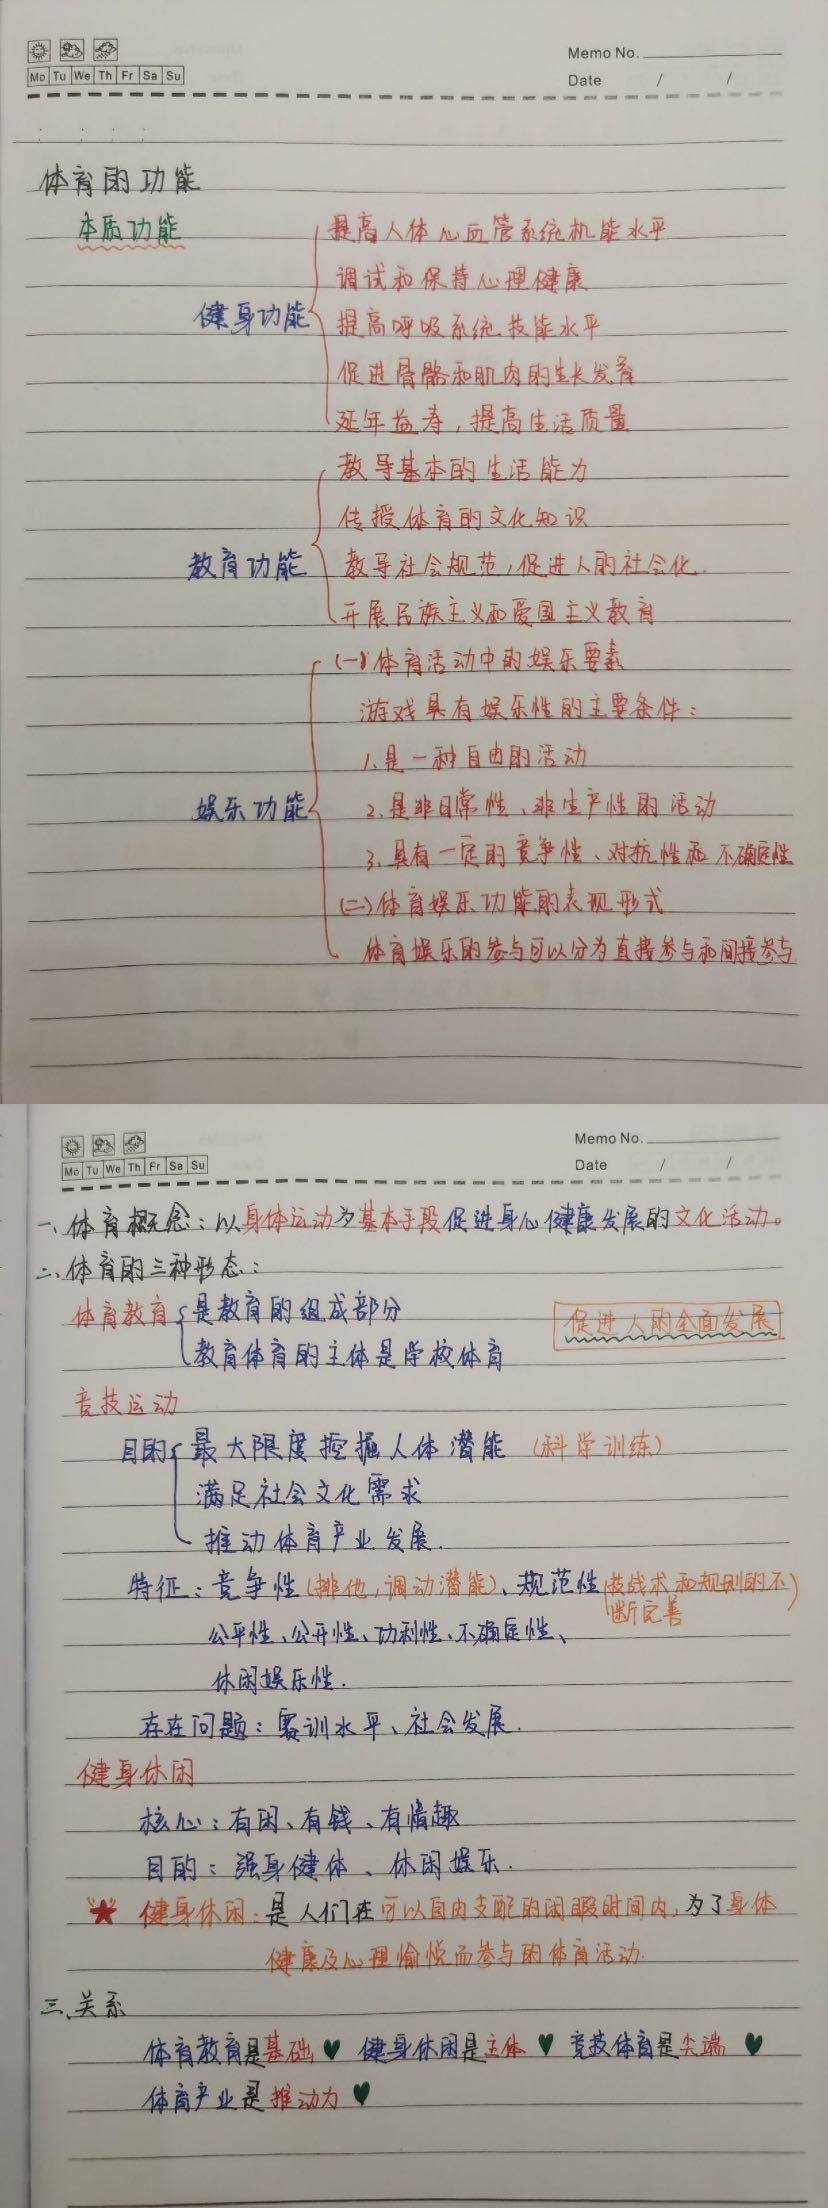 Memo No.
Mo Tu We Th Fr Sa Su
Date / /
体育的功能
本质功能
健身功能
提高人体心血管系统机能水平
调试和保持心理健康
提高呼吸系统技能水平
促进骨骼和肌肉的生长发育
延年益寿，提高生活质量
教育功能
教导基本的生活能力
传授体育的文化知识
教导社会规范，促进人的社会化.
开展民族主义和爱国主义教育
娱乐功能
(一)体育活动中的娱乐要素
游戏具有娱乐性的主要条件：
1.是一种自由的活动
2.是非日常性、非生产性的活动
3.具有一定的竞争性、对抗性和不确定性
(二)体育娱乐功能的表现形式
体育娱乐的参与可以分为直接参与和间接参与
Memo No.
Mo Tu We Th Fr Sa Su
Date / /
一、体育概念：以身体运动为基本手段促进身心健康发展的文化活动。
二、体育的三种形态：
体育教育
是教育的组成部分
教育体育的主体是学校体育
促进人的全面发展
竞技运动
目的
最大限度挖掘人体潜能 (科学训练)
满足社会文化需求
推动体育产业发展.
特征：竞争性(排他，调动潜能)、规范性(技战术和规则的不断完善)
公平性、公开性、功利性、不确定性、
休闲娱乐性.
存在问题：赛训水平、社会发展.
健身休闲
核心：有闲、有钱、有情趣
目的：强身健体、休闲娱乐.
★ 健身休闲：是人们在可以自由支配的闲暇时间内，为了身体
健康及心理愉悦而参与的体育活动.
三、关系
体育教育是基础 ♥ 健身休闲是主体 ♥ 竞技体育是尖端 ♥
体育产业是推动力 ♥